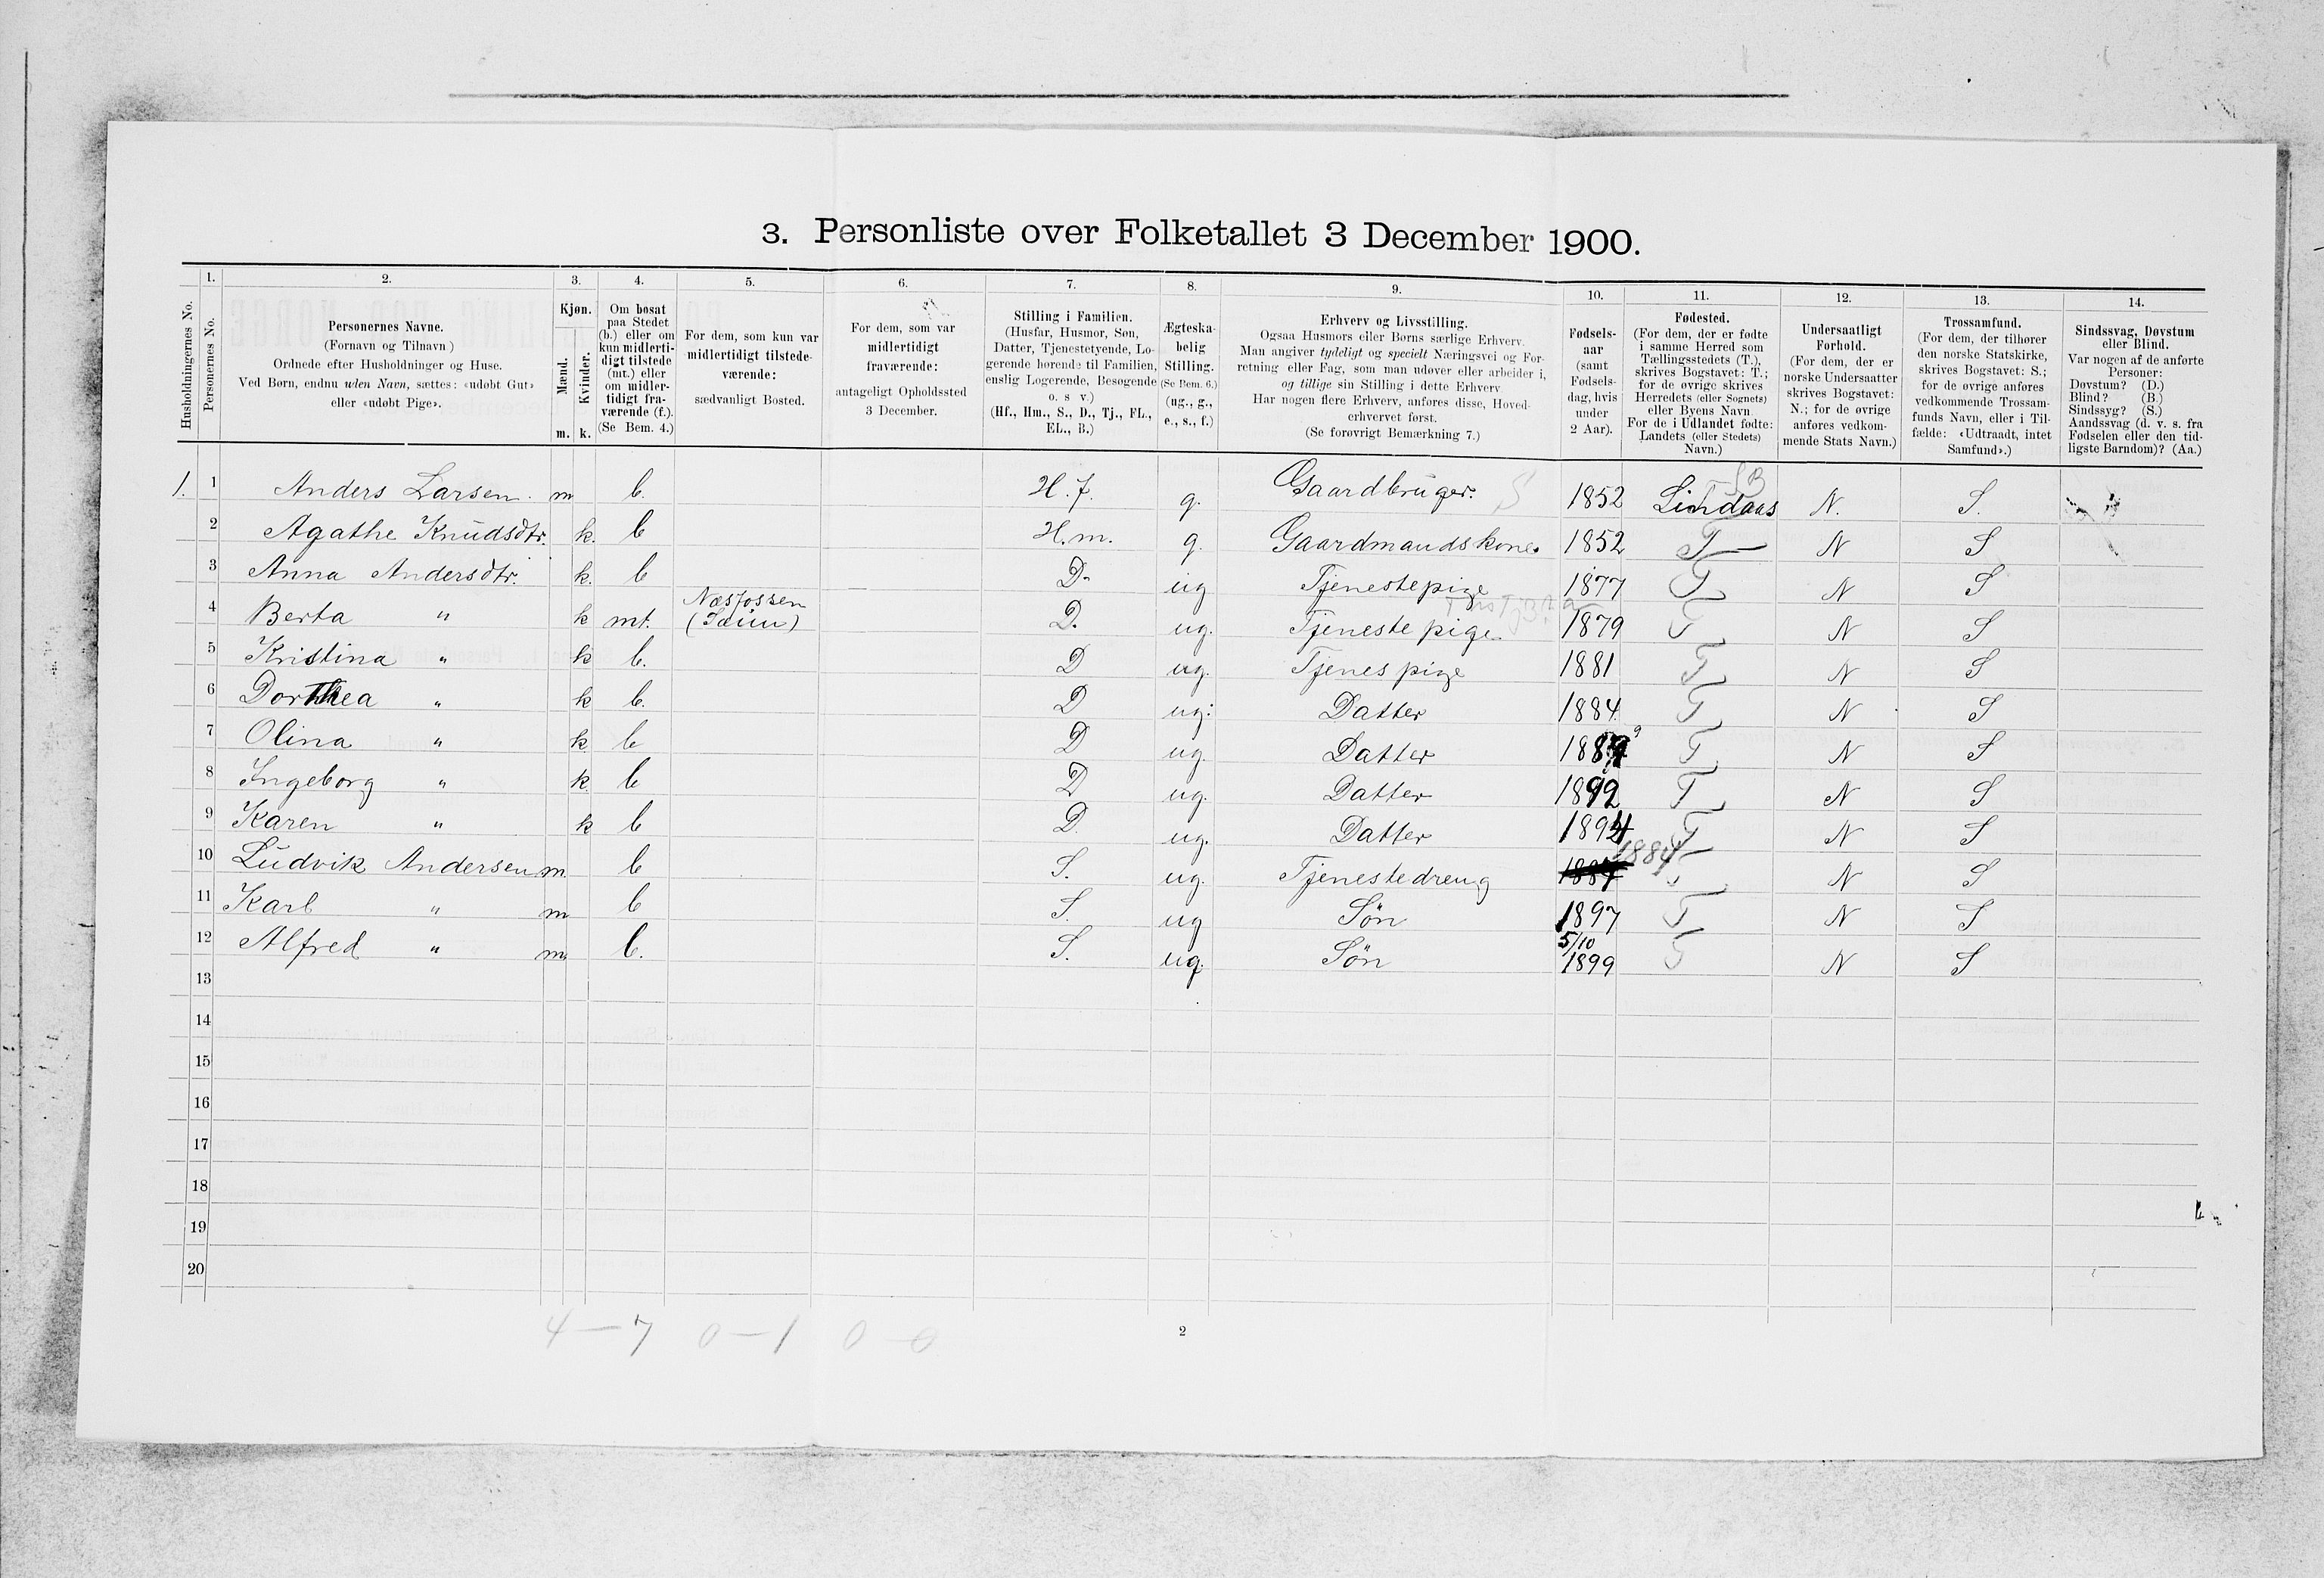 3. Personliste over Folketallet 3 December 1900.
Husholdningernes No.
1.
Personernes No.
2.
Personernes Navne.
(Fornavn og Tilnavn)
Ordnede efter Husholdninger og Huse.
Ved Børn, endnu uden Navn, sættes: «udøbt Gut»
eller «udøbt Pige».
3.
Kjøn.
Mænd.
Kvinder.
m. k.
4.
Om bosat
paa Stedet
(b.) eller om
kun midlerti-
digt tilstede
(mt.) eller
om midler-
tidigt fra-
værende (f.).
(Se Bem. 4.)
5.
For dem, som kun var
midlertidigt tilstede-
værende:
sædvanligt Bosted.
6.
For dem, som var
midlertidigt
fraværende:
antageligt Opholdssted
3 December.
7.
Stilling i Familien.
(Husfar, Husmor, Søn,
Datter, Tjenestetyende, Lo-
gerende hørende til Familien,
enslig Logerende, Besøgende
o. s v.)
(Hf., Hm., S., D., Tj., FL.,
EL., B.)
8.
Ægteska-
belig
Stilling.
(Se Bem. 6.)
(ug., g.,
e., s., f.)
9.
Erhverv og Livsstilling.
Ogsaa Husmors eller Børns særlige Erhverv.
Man angiver tydeligt og specielt Næringsvei og For-
retning eller Fag, som man udøver eller arbeider i,
og tillige sin Stilling i dette Erhverv
Har nogen flere Erhverv, anføres disse, Hoved-
erhvervet først.
(Se forøvrigt Bemærkning 7.)
10.
Fødsels-
aar
(samt
Fødsels-
dag, hvis
under
2 Aar).
11.
Fødested.
(For dem, der er fødte
i samme Herred som
Tællingsstedets (T.),
skrives Bogstavet: T.;
for de øvrige skrives
Herredets (eller Sognets)
eller Byens Navn
For de i Udlandet fødte:
Landets (eller Stedets)
Navn.)
12.
Undersaatligt
Forhold.
(For dem, der er
norske Undersaatter
skrives Bogstavet:
N.; for de øvrige
anføres vedkom-
mende Stats Navn.)
13.
Trossamfund.
(For dem, der tilhører
den norske Statskirke,
skrives Bogstavet: S.;
for de øvrige anføres
vedkommende Trossam-
funds Navn, eller i Til-
fælde: «Udtraadt, intet
Samfund».)
14.
Sindssvag, Døvstum
eller Blind.
Var nogen af de anførte
Personer:
Døvstum? (D.)
Blind? (B.)
Sindssyg? (S.)
Aandssvag (d. v. s. fra
Fødselen eller den tid-
ligste Barndom)? (Aa.)
1. 1 Anders Larsen. m b. H.f. g. Gaardbruger. S 1852 Lindaas N. S.
2 Agathe Knudsdtr. k. b H.m. g. Gaardmandskone. 1852 T N S
3 Anna Andersdtr. k. b D. ug Tjenestepige 1877 T N S
4 Berta " k mt. D. ug. Tjeneste pige. 1879 T N S
5 Kristina " k b. D ug. Tjenes pige 1881 T N S
6 Dorthea " k b. D ug. Datter 1884 T N S
7 Olina " k b D ug. Datter 1889 T N S
8 Ingeborg " k. b D ug. Datter 1892 T N S
9 Karen " k b D. ug. Datter 1894 T N S
10 Ludvik Andersen m. b S. ug. Tjenestedreng 1884 T N S
11 Karl " m b S. ug Søn 1897 T N S
12 Alfred " m b. S. ug. Søn 5/10 1899 T N S
13
14
15
16
17
18
19
20
4 — 7 0 — 1 0 — 0
2